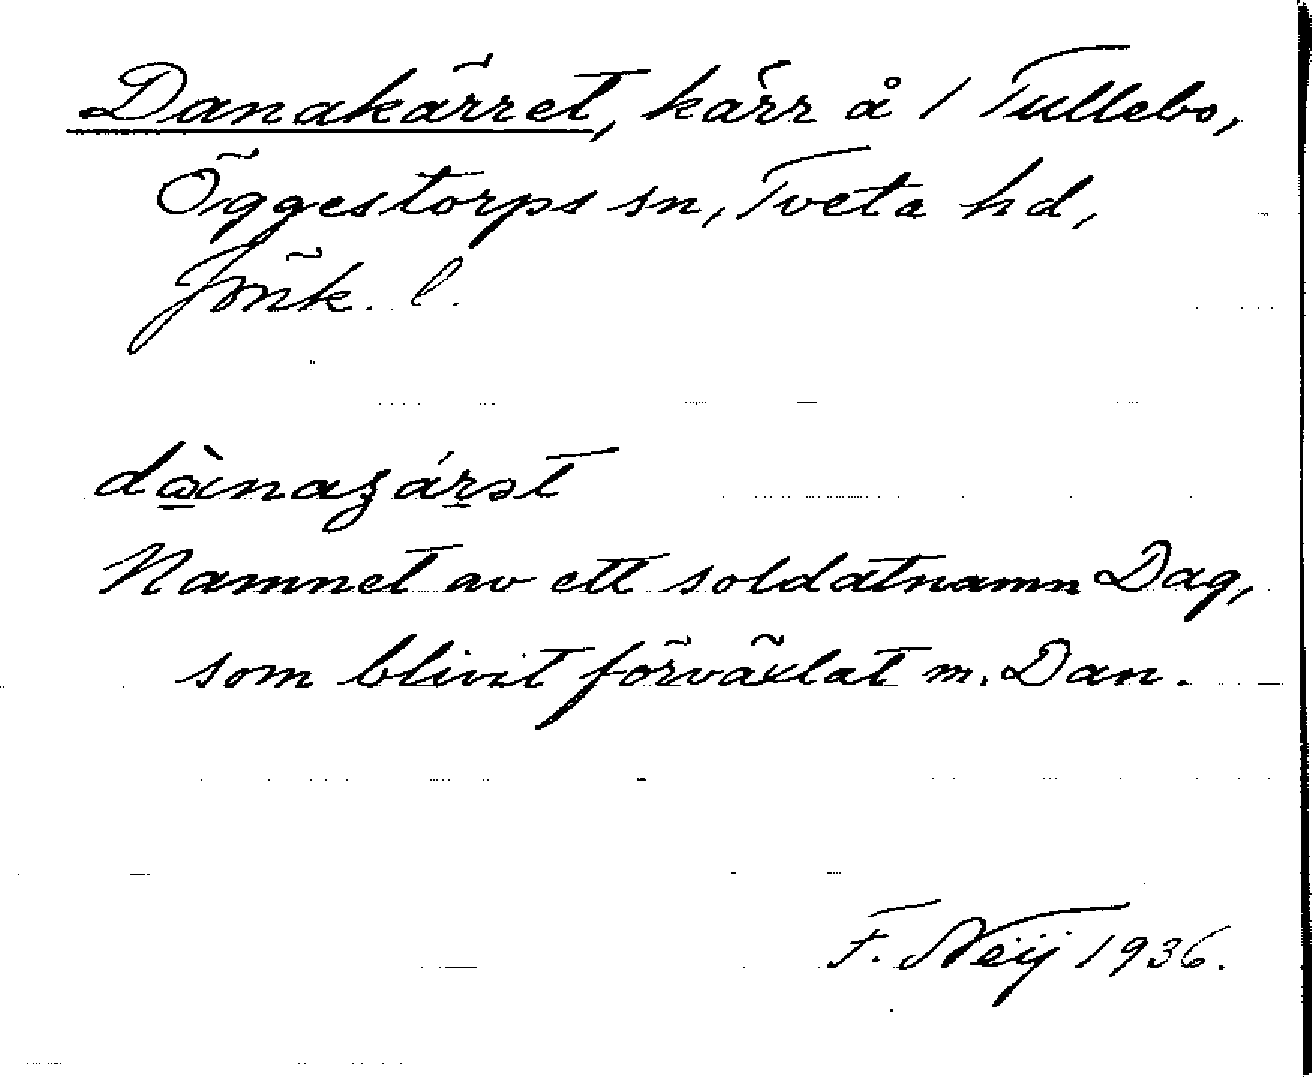 Danakärret, kärr å 1 Tullebo,
Öggestorps sn, Tveta hd,
Jönk. l.
Namnet av ett soldatnamn Dag,
som blivit förväxlat m. Dan.
F. Neij 1936.